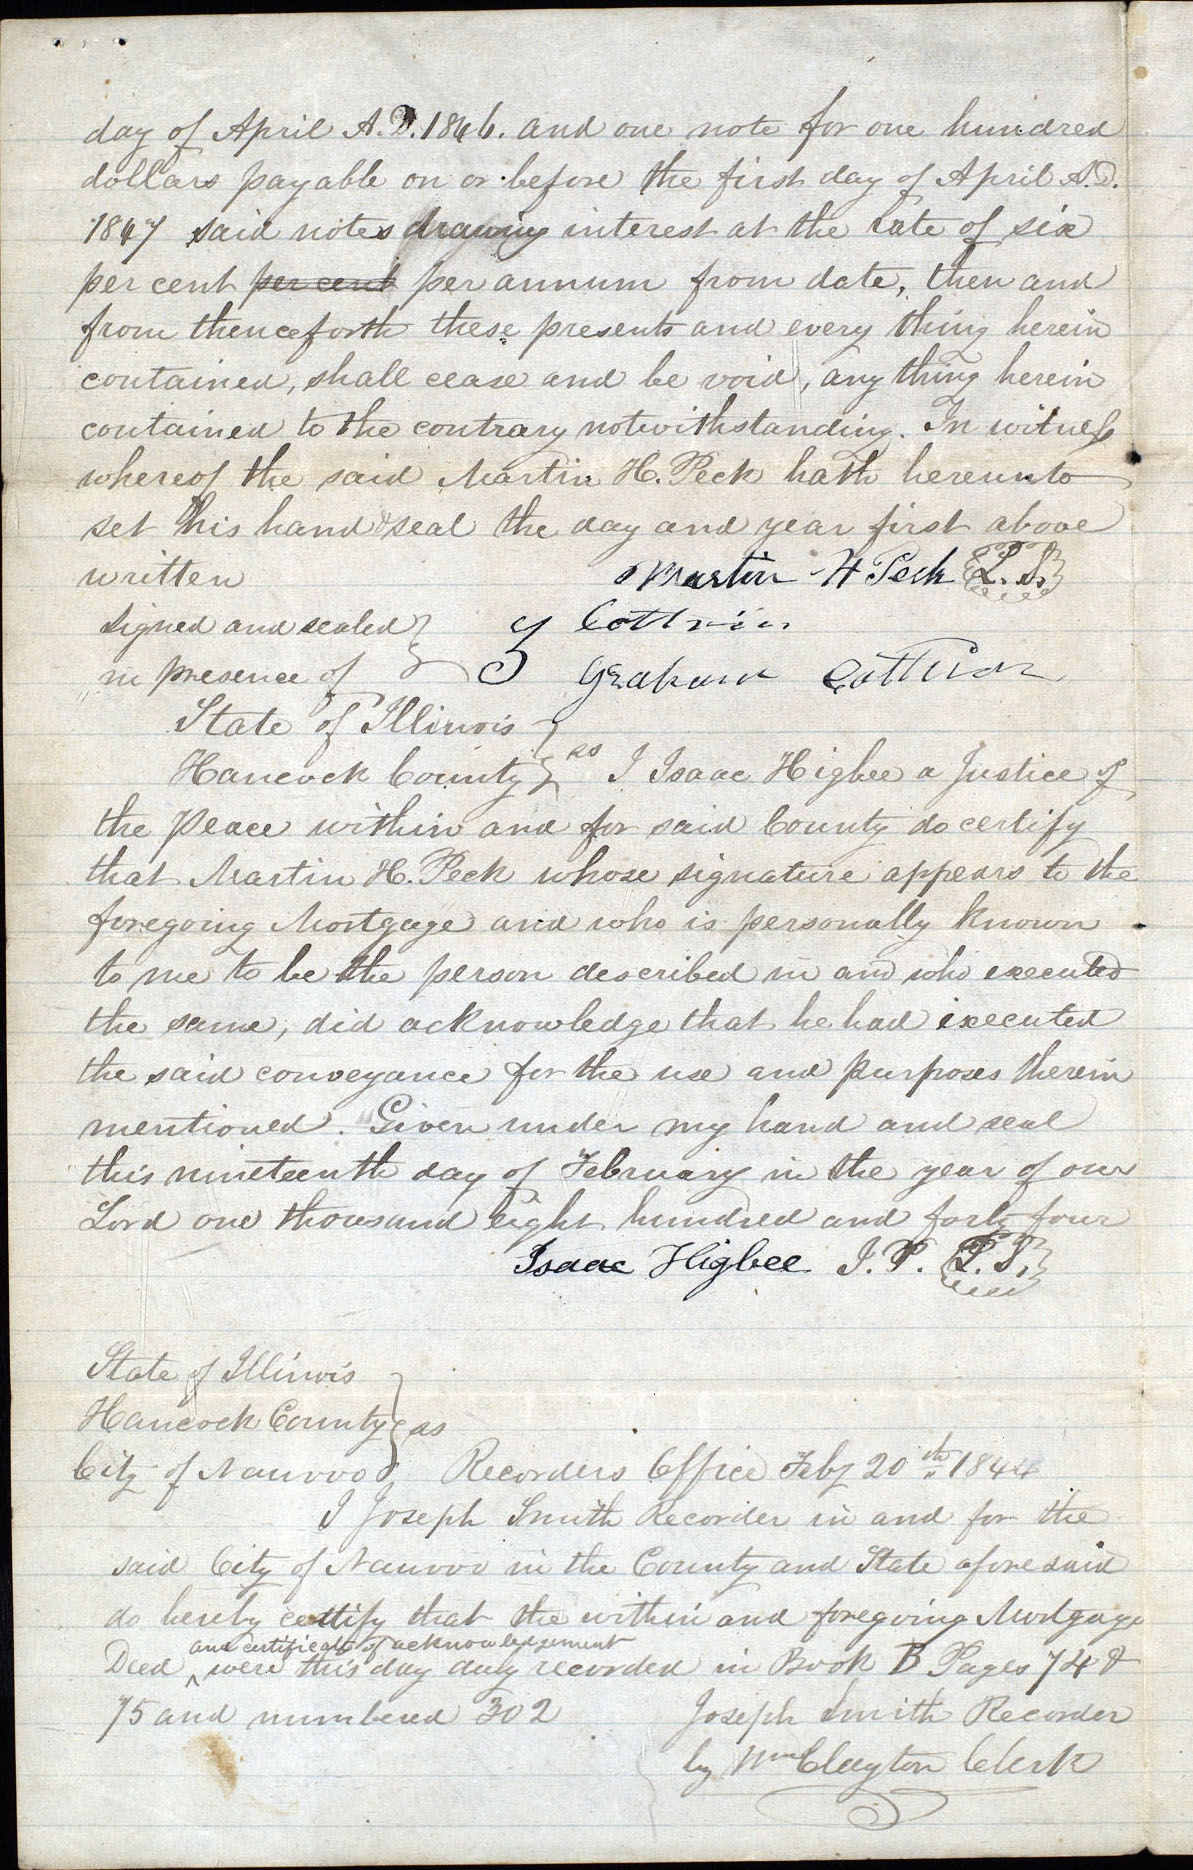 day of April A.D. 1846. and one note for one hundred
dollars payable on or before the first day of April A.D.
1847 said notes drawing interest at the rate of six
per cent per cent per annum from date, then and
from thenceforth these presents and every thing herein
contained, shall cease and be void, any thing herein
contained to the contrary notwithstanding. In witness
whereof the said Martin H. Peck hath hereunto
set his hand & seal the day and year first above
written Martin H Peck L. S.
signed and sealed
in presence of Graham
State of Illinois
Hancock County ss I Isaac Higbee a Justice of
the Peace within and for said County do certify
that Martin H. Peck whose signature appears to the
foregoing Mortgage and who is personally known
to me to be the person described in and who executed
the same, did acknowledge that he had executed
the said conveyance for the use and purposes therein
mentioned. Given under my hand and seal
this nineteenth day of February in the year of our
Lord one thousand eight hundred and forty four
Isaac Higbee J. P. L. S.
State of Illinois
Hancock County ss
City of Nauvoo Recorders Office Feby 20th 1844
I Joseph Smith Recorder in and for the
said City of Nauvoo in the County and State aforesaid
do hereby certify that the within and foregoing Mortgage
and certificate of acknowledgement
Deed ^ were this day duly recorded in Book B Pages 74 &
75 and numbered 302 Joseph Smith Recorder
by Wm Clayton Clerk